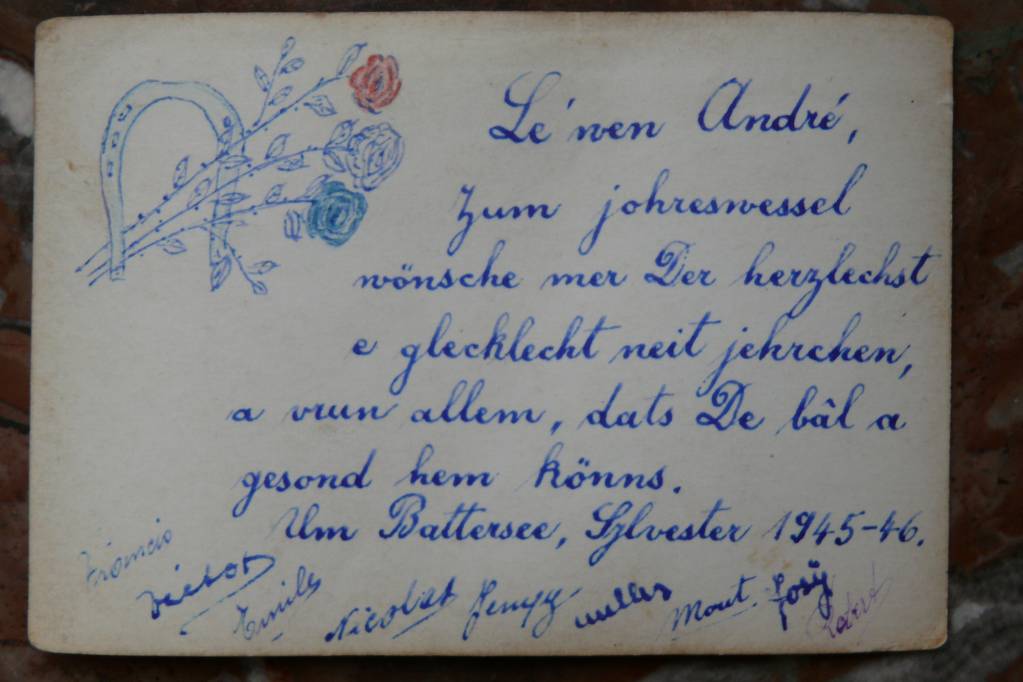 Lé'wen André,
Zum johreswessel
wönsche mer Der herzlechst
e glecklecht neit jehrchen,
a vrun allem, dats De bâl a
gesond hem könns.
Um Battersee, Sylvester 1945-46.
Francis
Victor
Emile
Nicolas Jempy Muller Mout Josÿ
Robert